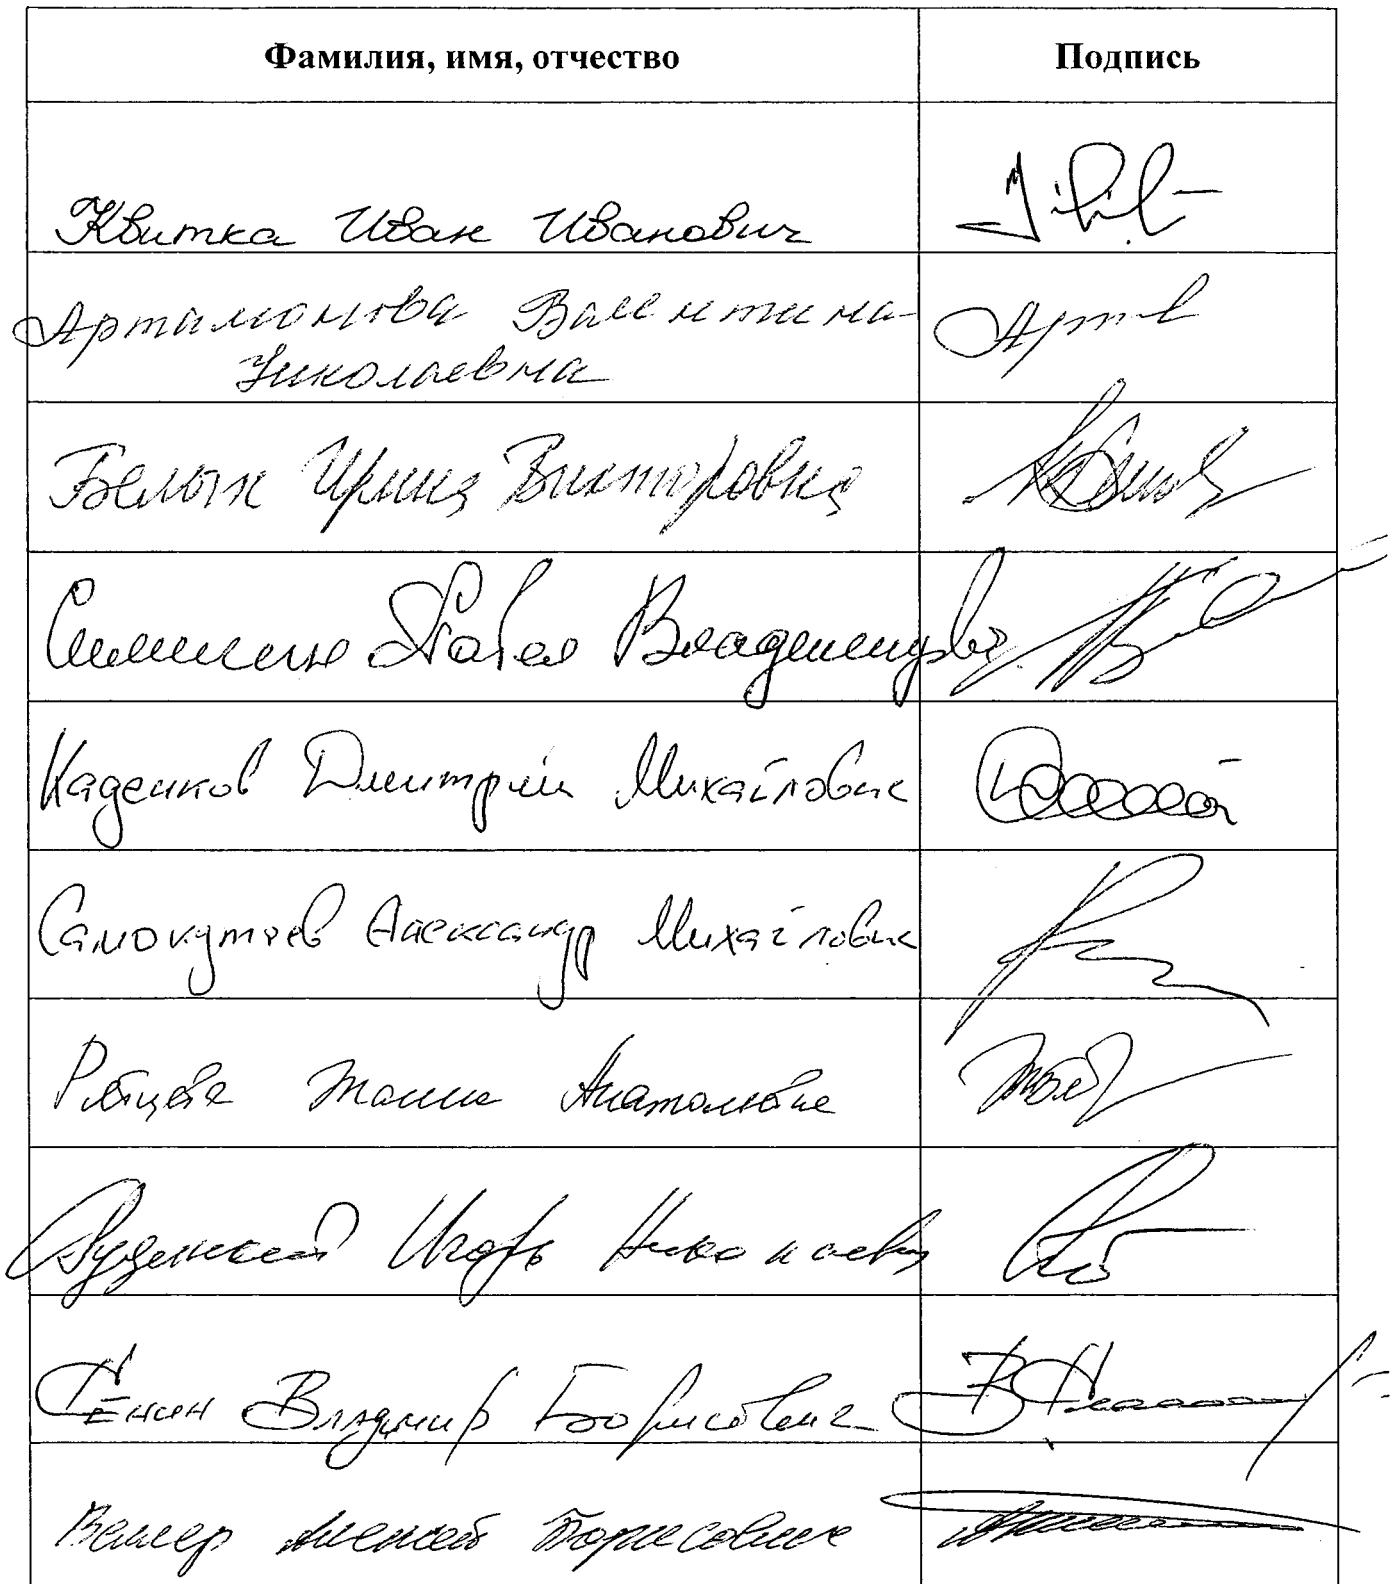 Фамилия, имя, отчество Подпись
Квитка Иван Иванович
Артамонова Валентина
Николаевна
Белых Ирина Викторовна
Симигин Павел Владимирович
Каденков Дмитрий Михайлович
Самокутяев Александр Михайлович
Рябцева Жанна Анатольевна
Руденский Игорь Николаевич
Сенин Владимир Борисович
Вельмер Алексей Борисович